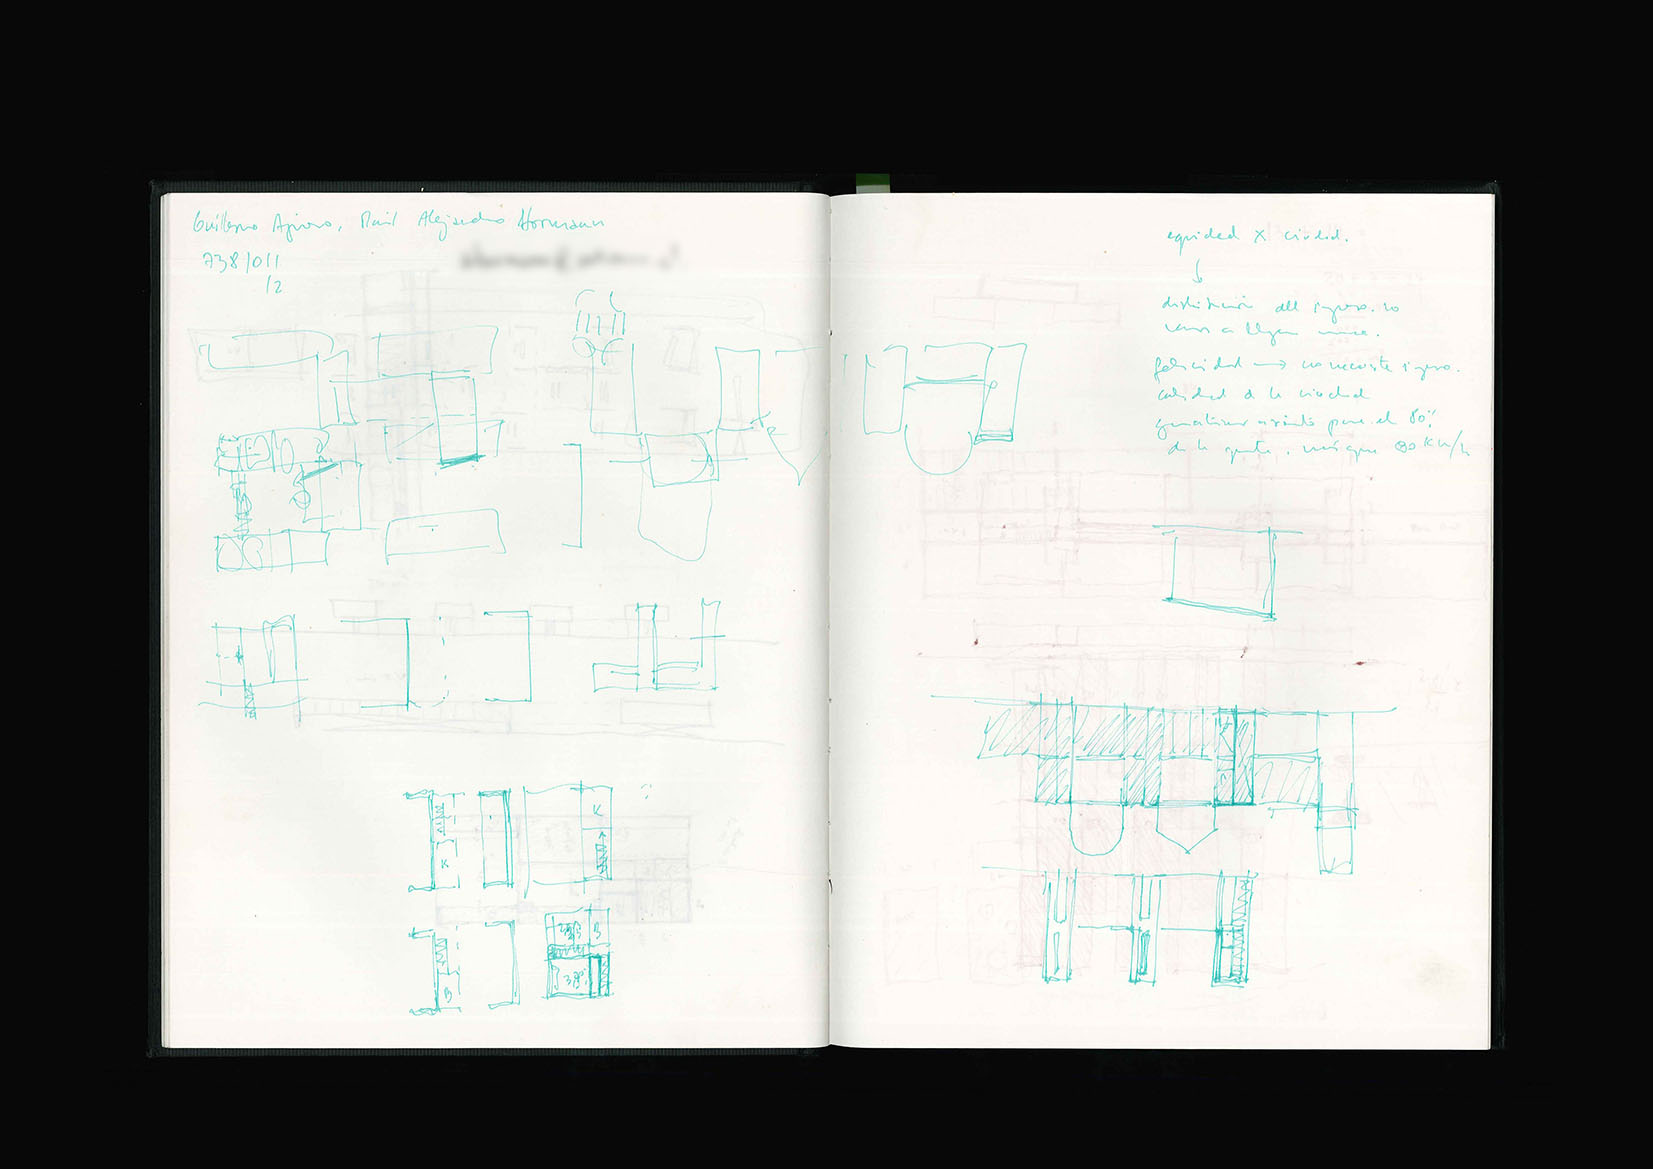 Guillermo, Raúl Alejandro Hormann
738/011
/2
equidad x ciudad.
distribución del ingreso. no
vamos a llegar nunca.
felicidad → no necesita ingreso.
calidad de la ciudad
para el 80%
de la gente, 80 Km/h
K
K
B
B